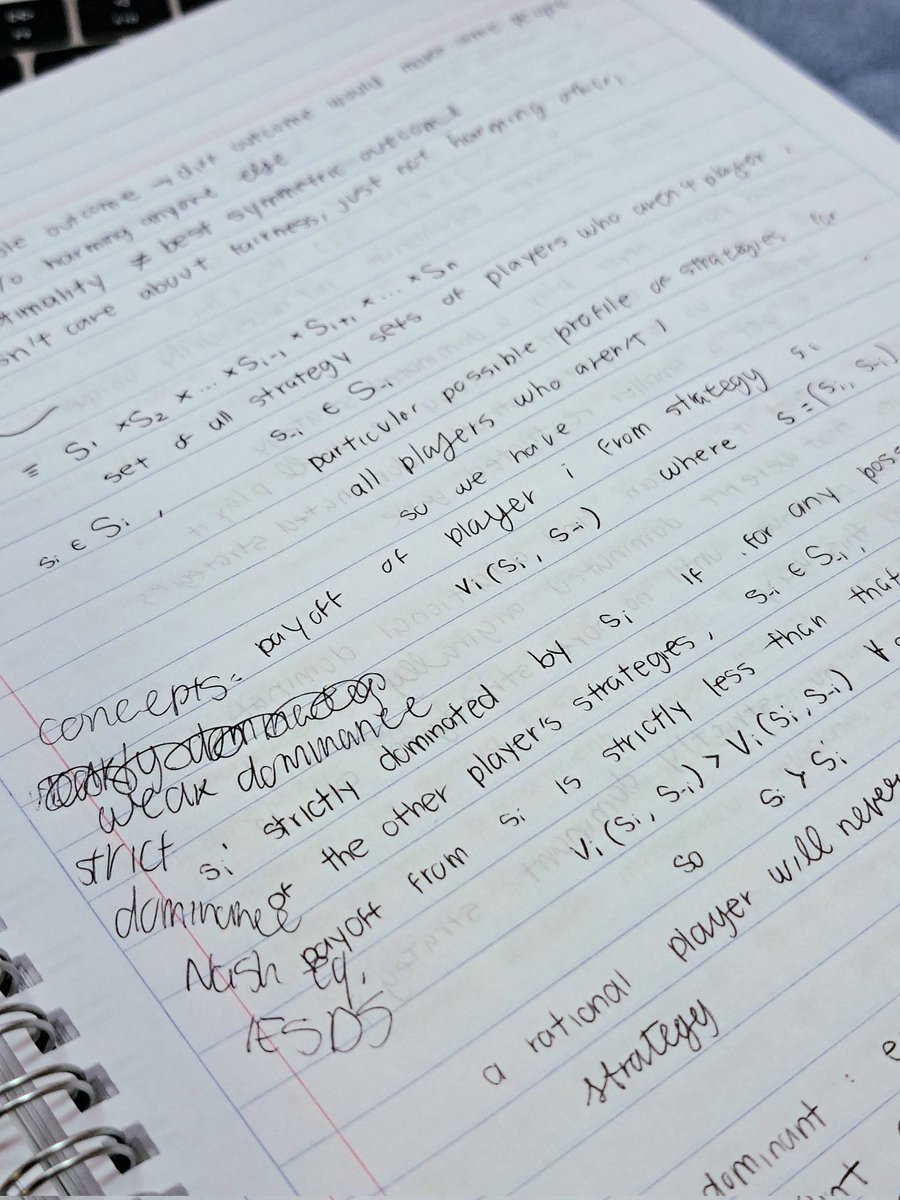 outcome → diff outcome would make some people
w/o harming anyone else
≠ best symmetric outcome
don't care about fairness, just not harming others,
≡ S₁ × S₂ × ... × Sᵢ₋₁ × Sᵢ₊₁ × ... × Sₙ
set of all strategy sets of players who aren't player i
sᵢ ∈ Sᵢ , s₋ᵢ ∈ S₋ᵢ particular possible profile of strategies for
all players who aren't i
so we have
payoff of player i from strategy sᵢ
vᵢ(sᵢ, s₋ᵢ) where s=(sᵢ, s₋ᵢ)
concepts:
weak dominance
strict dominance
Nash Eq.
IESDS
sᵢ' strictly dominated by sᵢ if for any
of the other player's strategies, s₋ᵢ ∈ S₋ᵢ,
payoff from sᵢ' is strictly less than that
vᵢ(sᵢ, s₋ᵢ) > vᵢ(sᵢ', s₋ᵢ) ∀
so sᵢ ≻ sᵢ'
a rational player will never
strategy
dominant :